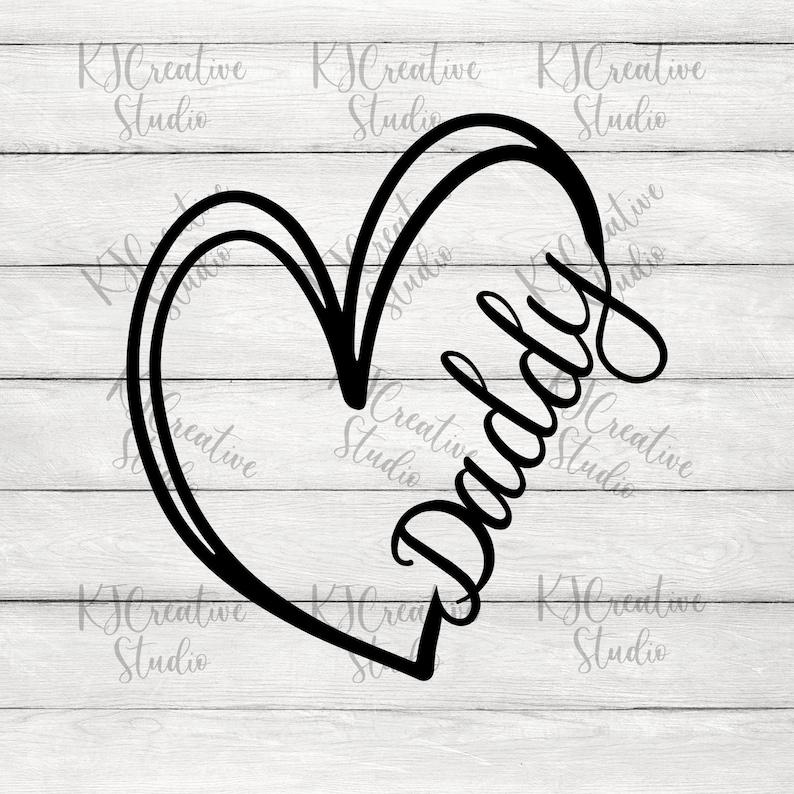 KJCreative KJCreative KJCreative
Studio Studio Studio
KJCreative KJCreative KJCreative
Studio Studio Studio
Daddy
KJCreative KJCreative KJCreative
Studio Studio Studio
KJCreative KJCreative KJCreative
Studio Studio Studio